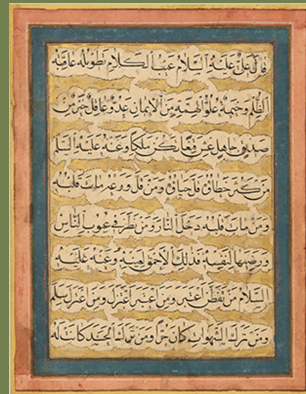 قال علي عليه السلام عيب الكلام تطويله عاقبة
الظلم وخيمة علو الهمة من الايمان عدو عاقل خير من
صديق جاهل عش قنعا تكن ملكا وعنه عليه السلم
من كثر خطاؤه قل حياؤه ومن قل ورعه مات قلبه
ومن مات قلبه دخل النار ومن نظر في عيوب الناس
ورضيها لنفسه فذلك الاحمق بعينه وعنه عليه
السلام من تفكر اعتبر ومن اعتبر اعتزل ومن اعتزل سلم
ومن ترك الشهوات كان حرا ومن ترك الحسد كانت له